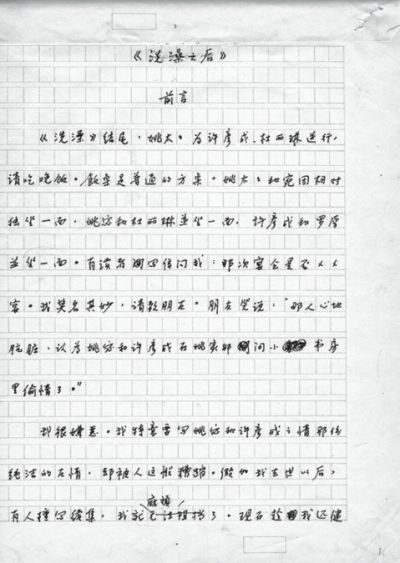 《洗澡之后》
前言
《洗澡》结尾,姚太太为许彦成、杜丽琳送行,
请吃晚饭。饭桌是普通的方桌。姚太太和宛英相对
独坐一面,姚宓和杜丽琳并坐一面,许彦成和罗厚
并坐一面。有读者写信问我:那次宴会是否
宴。我莫名其妙,请教朋友。朋友笑说:“那人心地
肮脏,认为姚宓和许彦成在姚家那间小书房
里偷情了。”
我很嫌恶。我特意要写姚宓和许彦成之情那份
纯洁的友情,却被人这般糟蹋。假如我去世以后,
麻烦
有人擅写续集,我就了。现在趁我还健